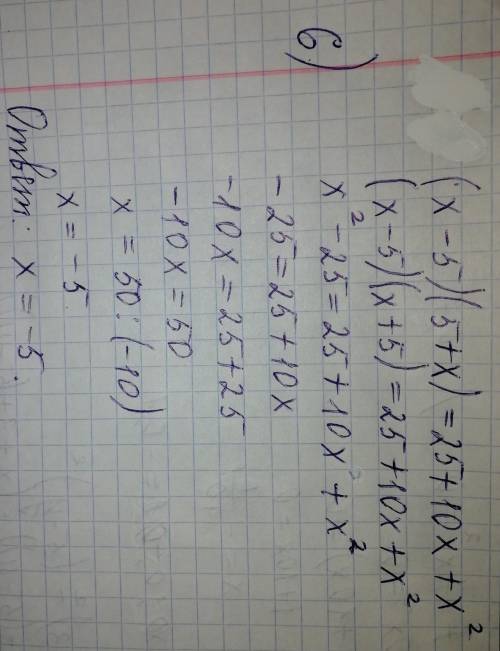 6)
(x - 5)(5 + x) = 25 + 10x + x²
(x - 5)(x + 5) = 25 + 10x + x²
x² - 25 = 25 + 10x + x²
- 25 = 25 + 10x
- 10x = 25 + 25
- 10x = 50
x = 50 : (-10)
x = -5
Ответ: x = -5.